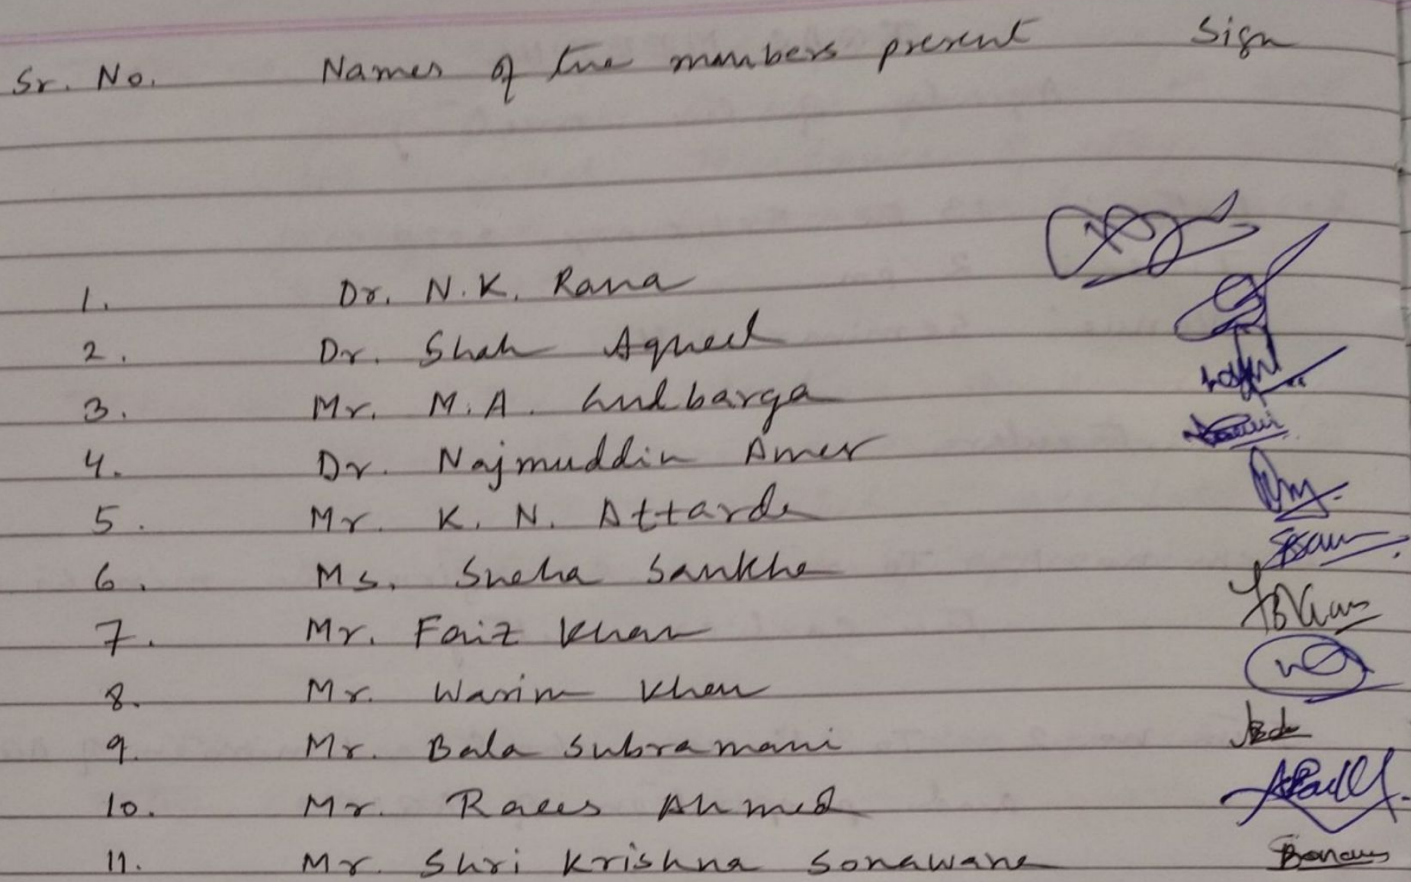 Sr. No. Names of the members present Sign
1. Dr. N.K. Rana
2. Dr. Shah Aqueel
3. Mr. M.A. Gulbarga
4. Dr. Najmuddin Amer
5. Mr. K. N. Attarde
6. Ms. Sneha Sankhe
7. Mr. Faiz Khan
8. Mr. Wasim Khan
9. Mr. Bala Subramani
10. Mr. Raees Ahmed
11. Mr. Shri Krishna Sonawane